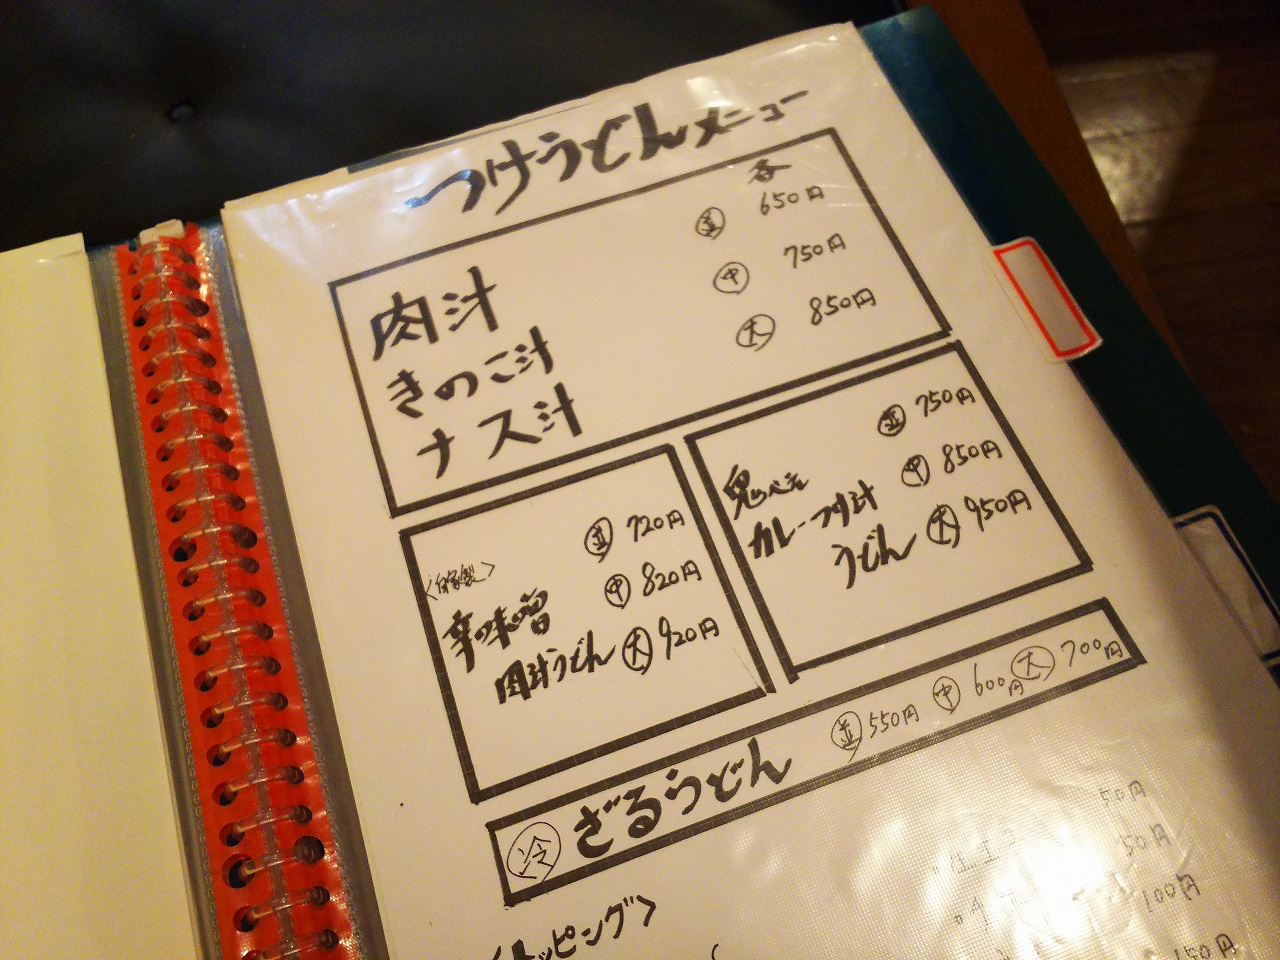 つけうどんメニュー
各
並 650円
中 750円
大 850円
肉汁
きのこ汁
ナス汁
〈自家製〉
辛味噌
肉汁うどん
並 720円
中 820円
大 920円
カレーつけ汁
うどん
並 750円
中 850円
大 950円
冷 ざるうどん 並 550円 中 600円 大 700円
〈トッピング〉
50円
50円
100円
150円